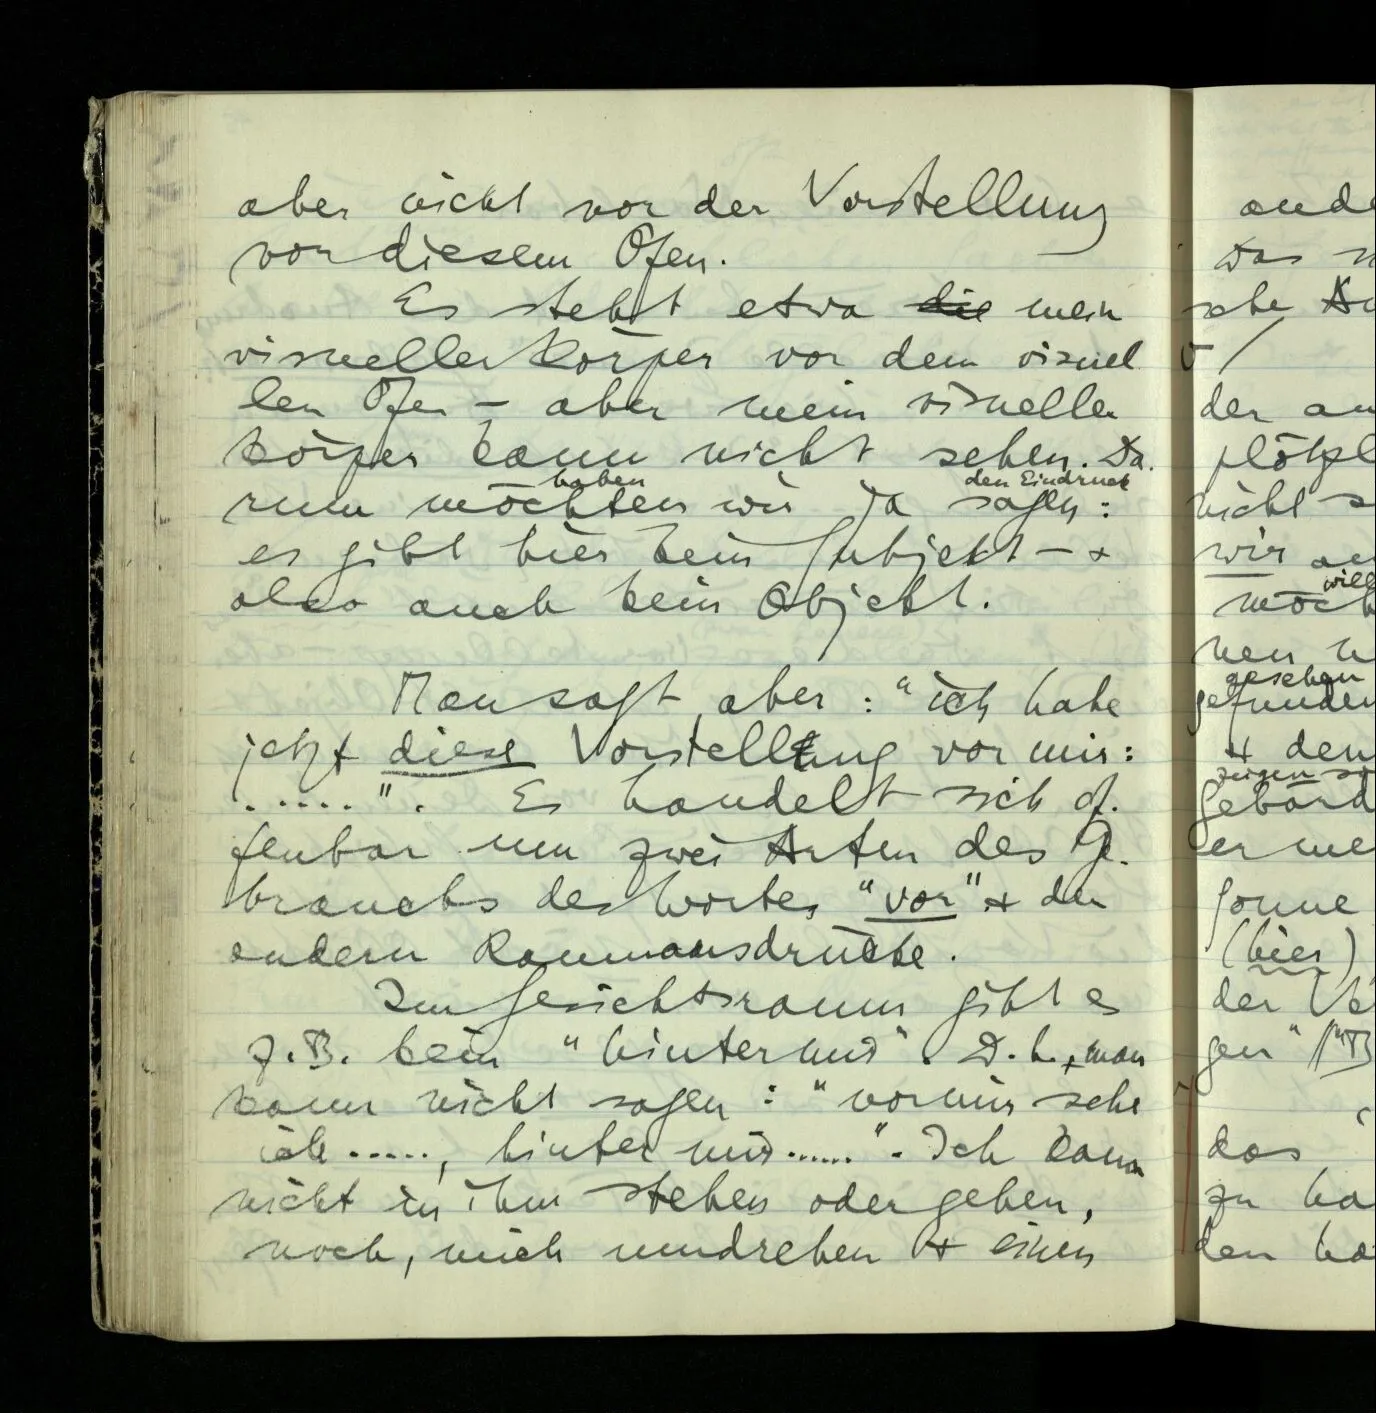 aber nicht vor der Vorstellung
von diesem Ofen.
Es steht etwa die mein
visueller Körper vor dem visuel
len Ofen – aber mein visueller
Körper kann nicht sehen. Da.
haben den Eindruck
rum möchten wir ja sagen:
es gibt hier kein Subjekt – +
also auch kein Objekt.
Man sagt aber: "ich habe
jetzt diese Vorstellung vor mir:
.....". Es handelt sich of.
fenbar um zwei Arten des Ge.
brauchs des Wortes "vor" + der
andern Raumausdrücke.
Im Gesichtsraum gibt es
z.B. kein "hinter mir". D.h., man
kann nicht sagen: "vor mir sehe
ich ....., hinter mir ......". Ich kann
nicht in ihm stehen oder gehen,
noch, mich umdrehen + einen
ande
was
sehe
der an
plötzl
nicht
wir
will
möch
nen
gesehen
gefunden
+ den
zeigen
Gebärd
er me
Sonne
(hier)
der Ve
gen"
das
zu ha
den ha